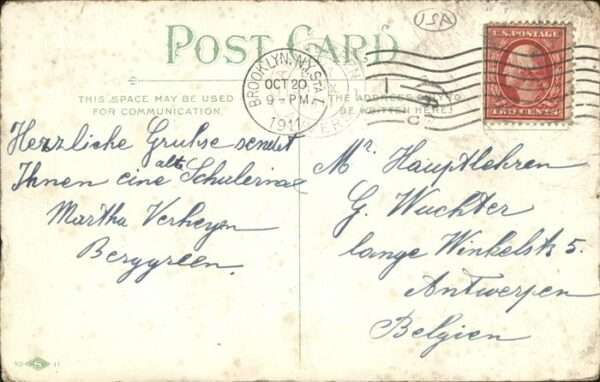 POST CARD
A21
U.S. POSTAGE
TWO CENTS
BROOKLYN, N.Y. STA. L
OCT 20
9-PM
1911
THIS SPACE MAY BE USED
FOR COMMUNICATION.
THE ADDRESS
BE WRITTEN HERE
Herzliche Gruhse sendet
alte
Ihnen eine Schulerinae
Martha Verheyen
Berggreen.
Mr. Hauptlehren
G. Wuchter
lange Winkelstr 5.
Antwerpen
Belgien